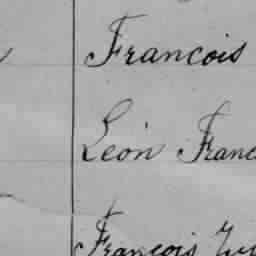 Francois
Léon Franc
François